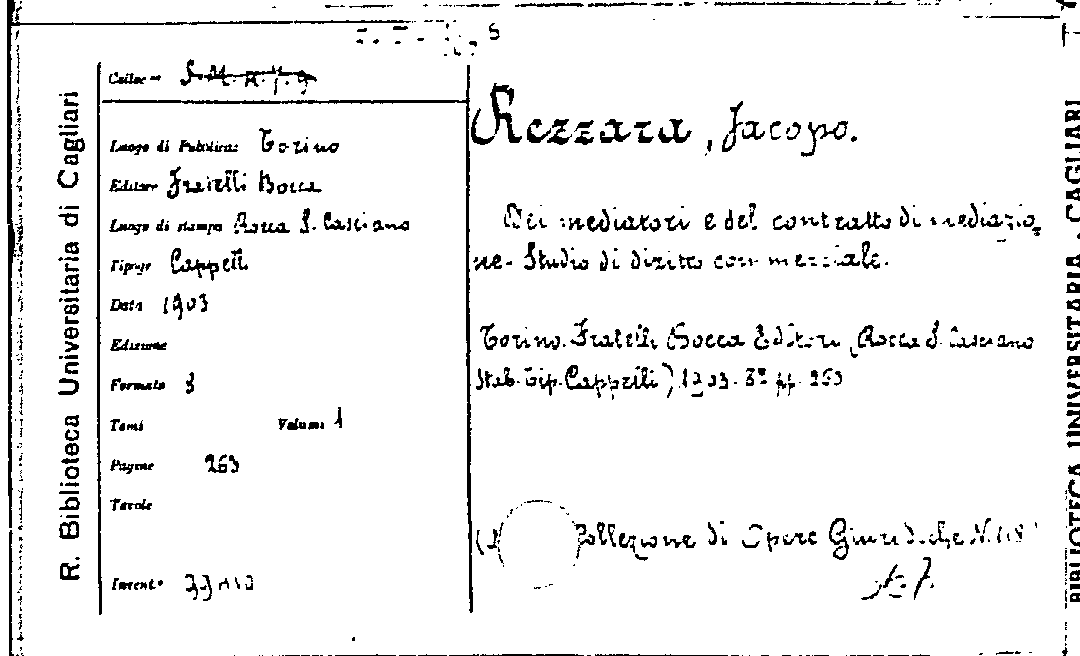 R. Biblioteca Universitaria di Cagliari
Luogo di Pubblicaz. Torino
Editore Fratelli Bocca
Luogo di stampa Rocca S. Casciano
Tipogr. Cappelli
Data 1903
Edizione
Formato 8
Tomi Volumi 1
Pagine 263
Tavole
Invent.
Rezzara, Jacopo.
Dei mediatori e del contratto di mediazio-
ne - Studio di diritto commerciale.
Torino. Fratelli Bocca Editori (Rocca S. Casciano
Stab. Tip. Cappelli) 1903. 8º pp. 263
Collezione di Opere Giuridiche N. 118
BIBLIOTECA UNIVERSITARIA - CAGLIARI